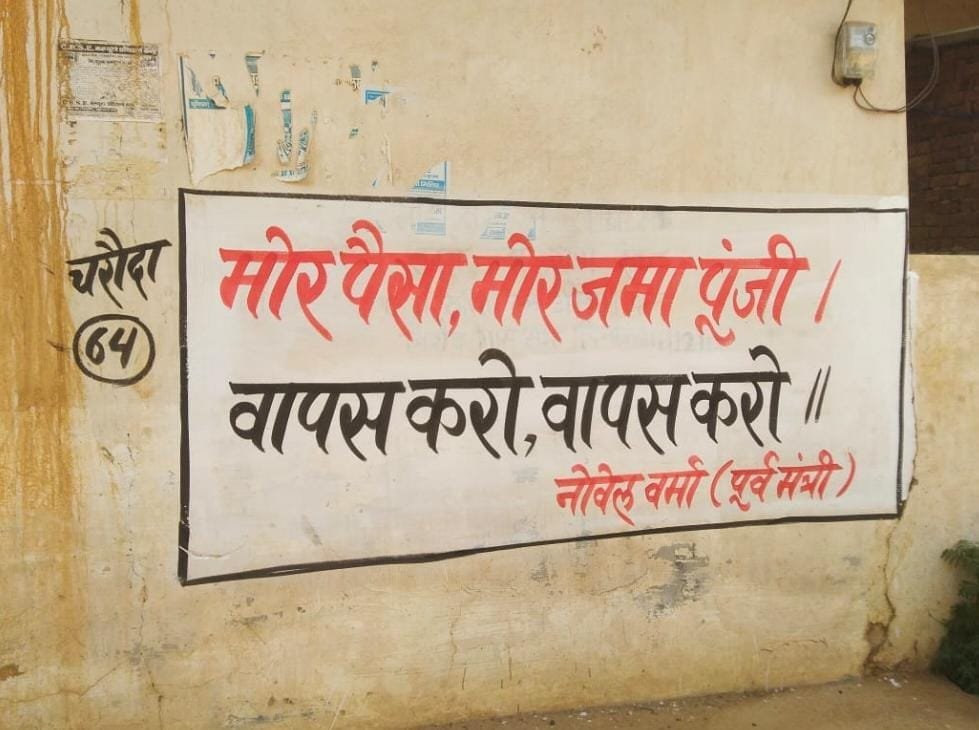 चरौदा
64
मोर पैसा, मोर जमा पूंजी ।
वापस करो, वापस करो ॥
नोवेल वर्मा (पूर्व मंत्री)